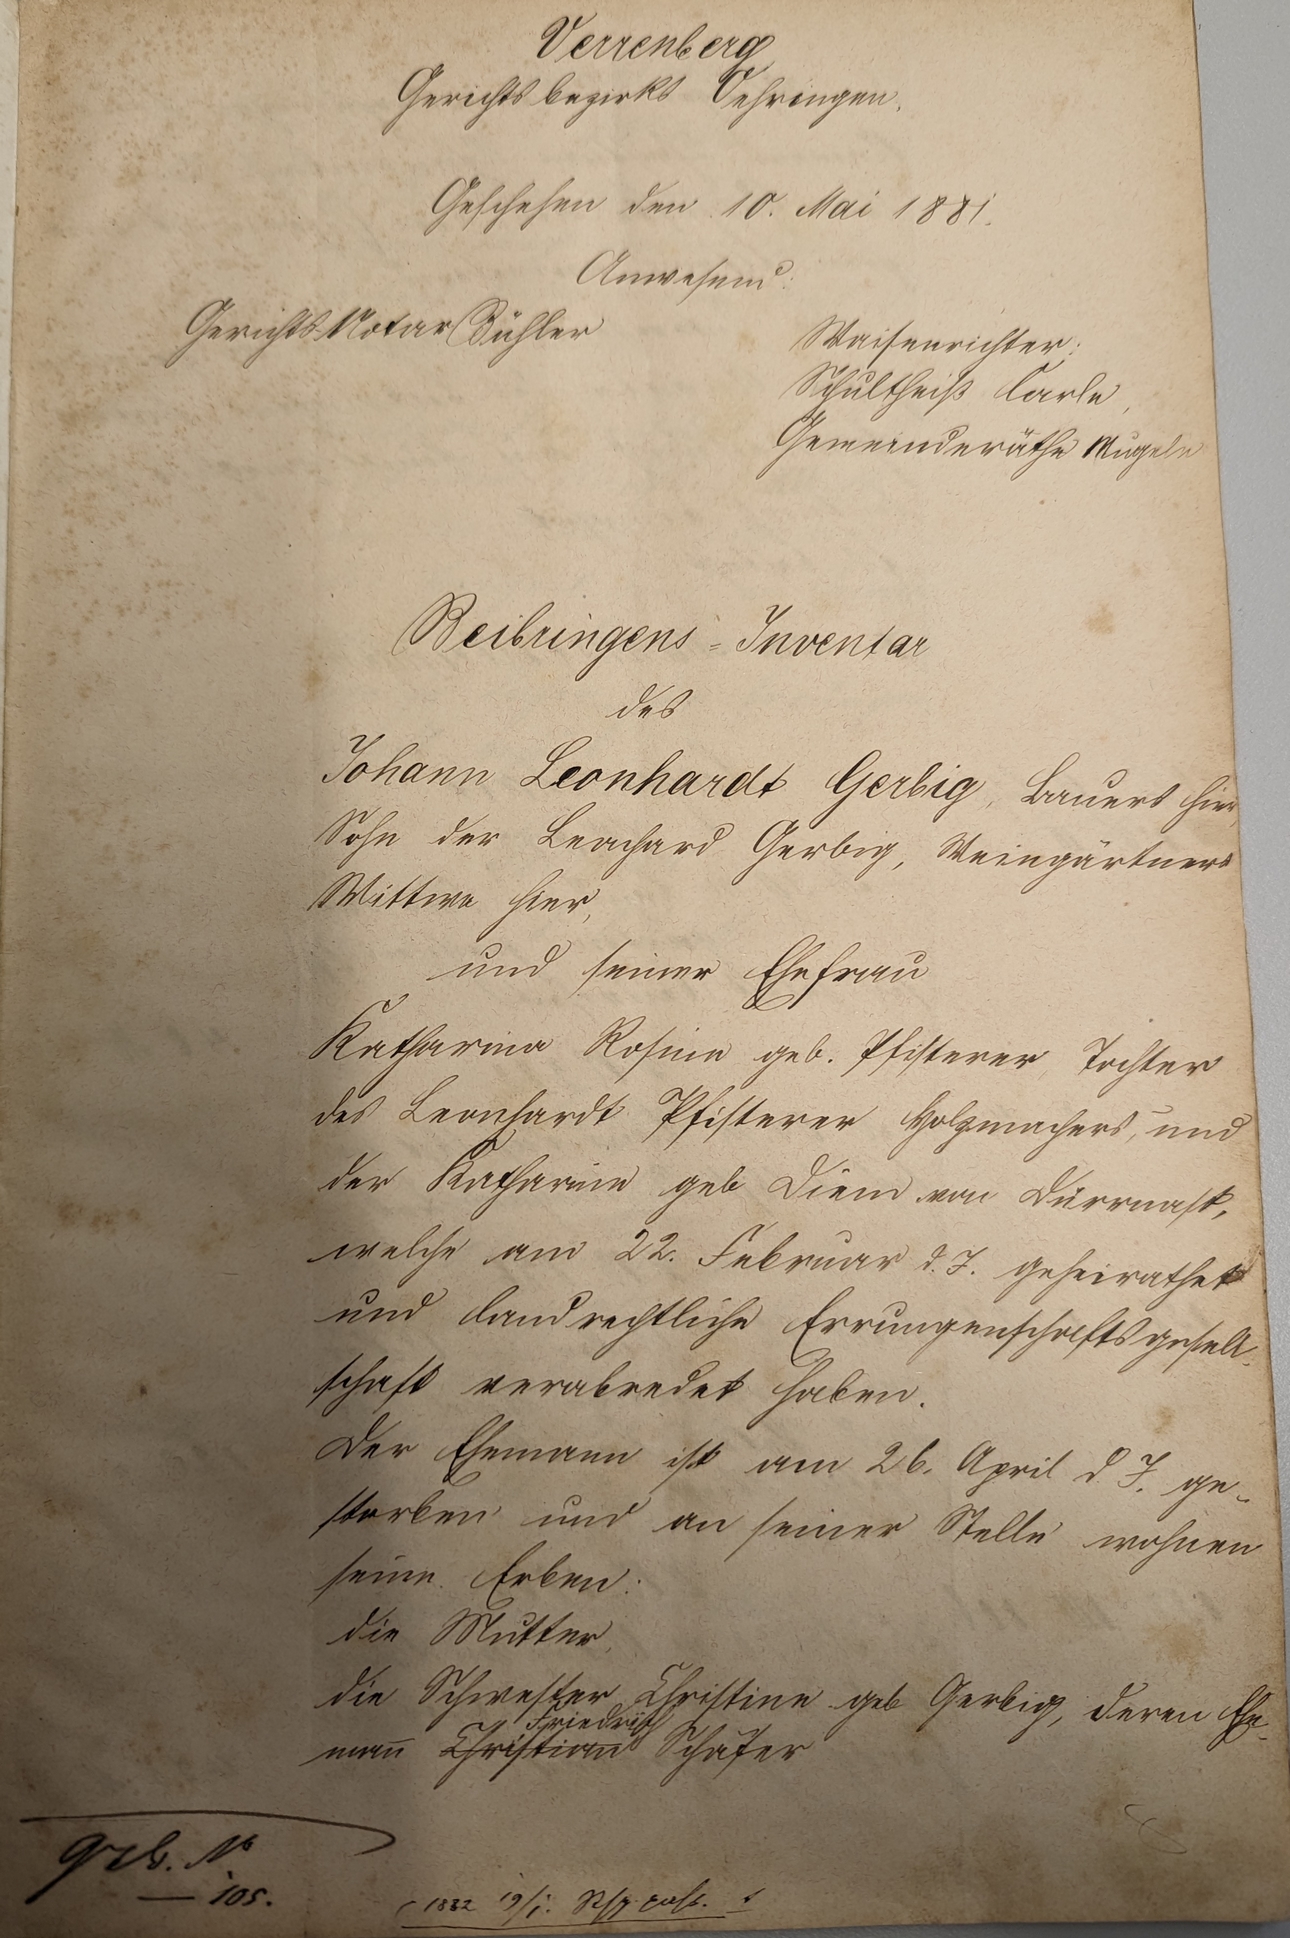 Verrenberg
Gerichtsbezirks Oehringen.
Geschehen den 10. Mai 1881.
Anwesend:
Gerichts Notar Bühler
Waisenrichter:
Schultheiß Carle,
Gemeinderäthe Mugele
Beibringens-Inventar
des
Johann Leonhardt Gerbig, Bauers hier,
Sohn der Leonhard Gerbig, Weingärtners
Wittwe hier,
und seiner Ehefrau
Katharina Rosina geb. Pfisterer, Tochter
des Leonhardt Pfisterer Holzmachers, und
der Katharine geb Diem von Dürrnast,
welche am 22. Februar d. J. geheirathet
und landrechtliche Errungenschaftsgesell-
schaft verabredet haben.
Der Ehemann ist am 26. April d. J. ge-
storben und an seiner Stelle wohnen
seine Erben:
die Mutter,
die Schwester Christine geb Gerbig, deren Ehe-
Friedrich
mann Christian Schäfer
Geb. No
105.
1882 19/1.